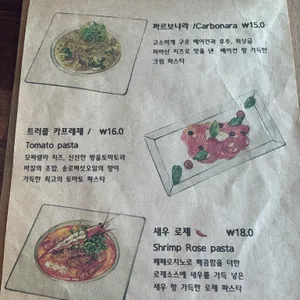 까르보나라 /Carbonara ₩15.0
고소하게 구운 베이컨과 후추, 최상급
파마산 치즈로 맛을 낸 베이컨 향 가득한
크림 파스타
트러플 카프레제 / ₩16.0
Tomato pasta
모짜렐라 치즈, 신선한 방울토마토와
바질의 조합, 송로버섯오일의 향이
가득한 최고의 토마토 파스타
새우 로제 ₩18.0
Shrimp Rose pasta
페페로치노로 매콤함을 더한
로제소스에 새우를 가득 넣은
새우 향 가득한 로제 파스타